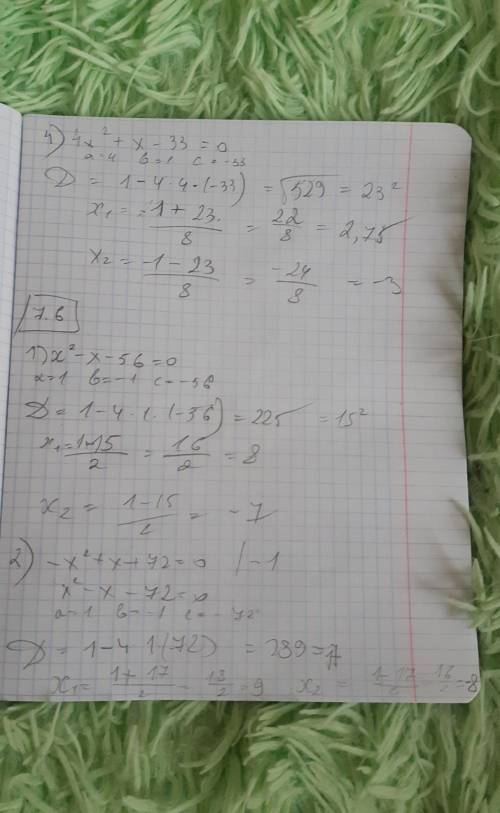 4) 4x² + x - 33 = 0
a=4 b=1 c=-33
D = 1-4·4·(-33) = √529 = 23²
x₁ = -1+23/8 = 22/8 = 2,75
x₂ = -1-23/8 = -24/8 = -3
7.6
1) x²-x-56=0
a=1 b=-1 c=-56
D = 1-4·1·(-56) = 225 = 15²
x₁ = 1+15/2 = 16/2 = 8
x₂ = 1-15/2 = -7
2) -x²+x+72=0 /-1
x²-x-72=0
a=1 b=-1 c=-72
D = 1-4·1(72) = 289 = 17
x₁ = 1+17/2 = 18/2 = 9 x₂ = 1-17/2 = 16/2 = -8